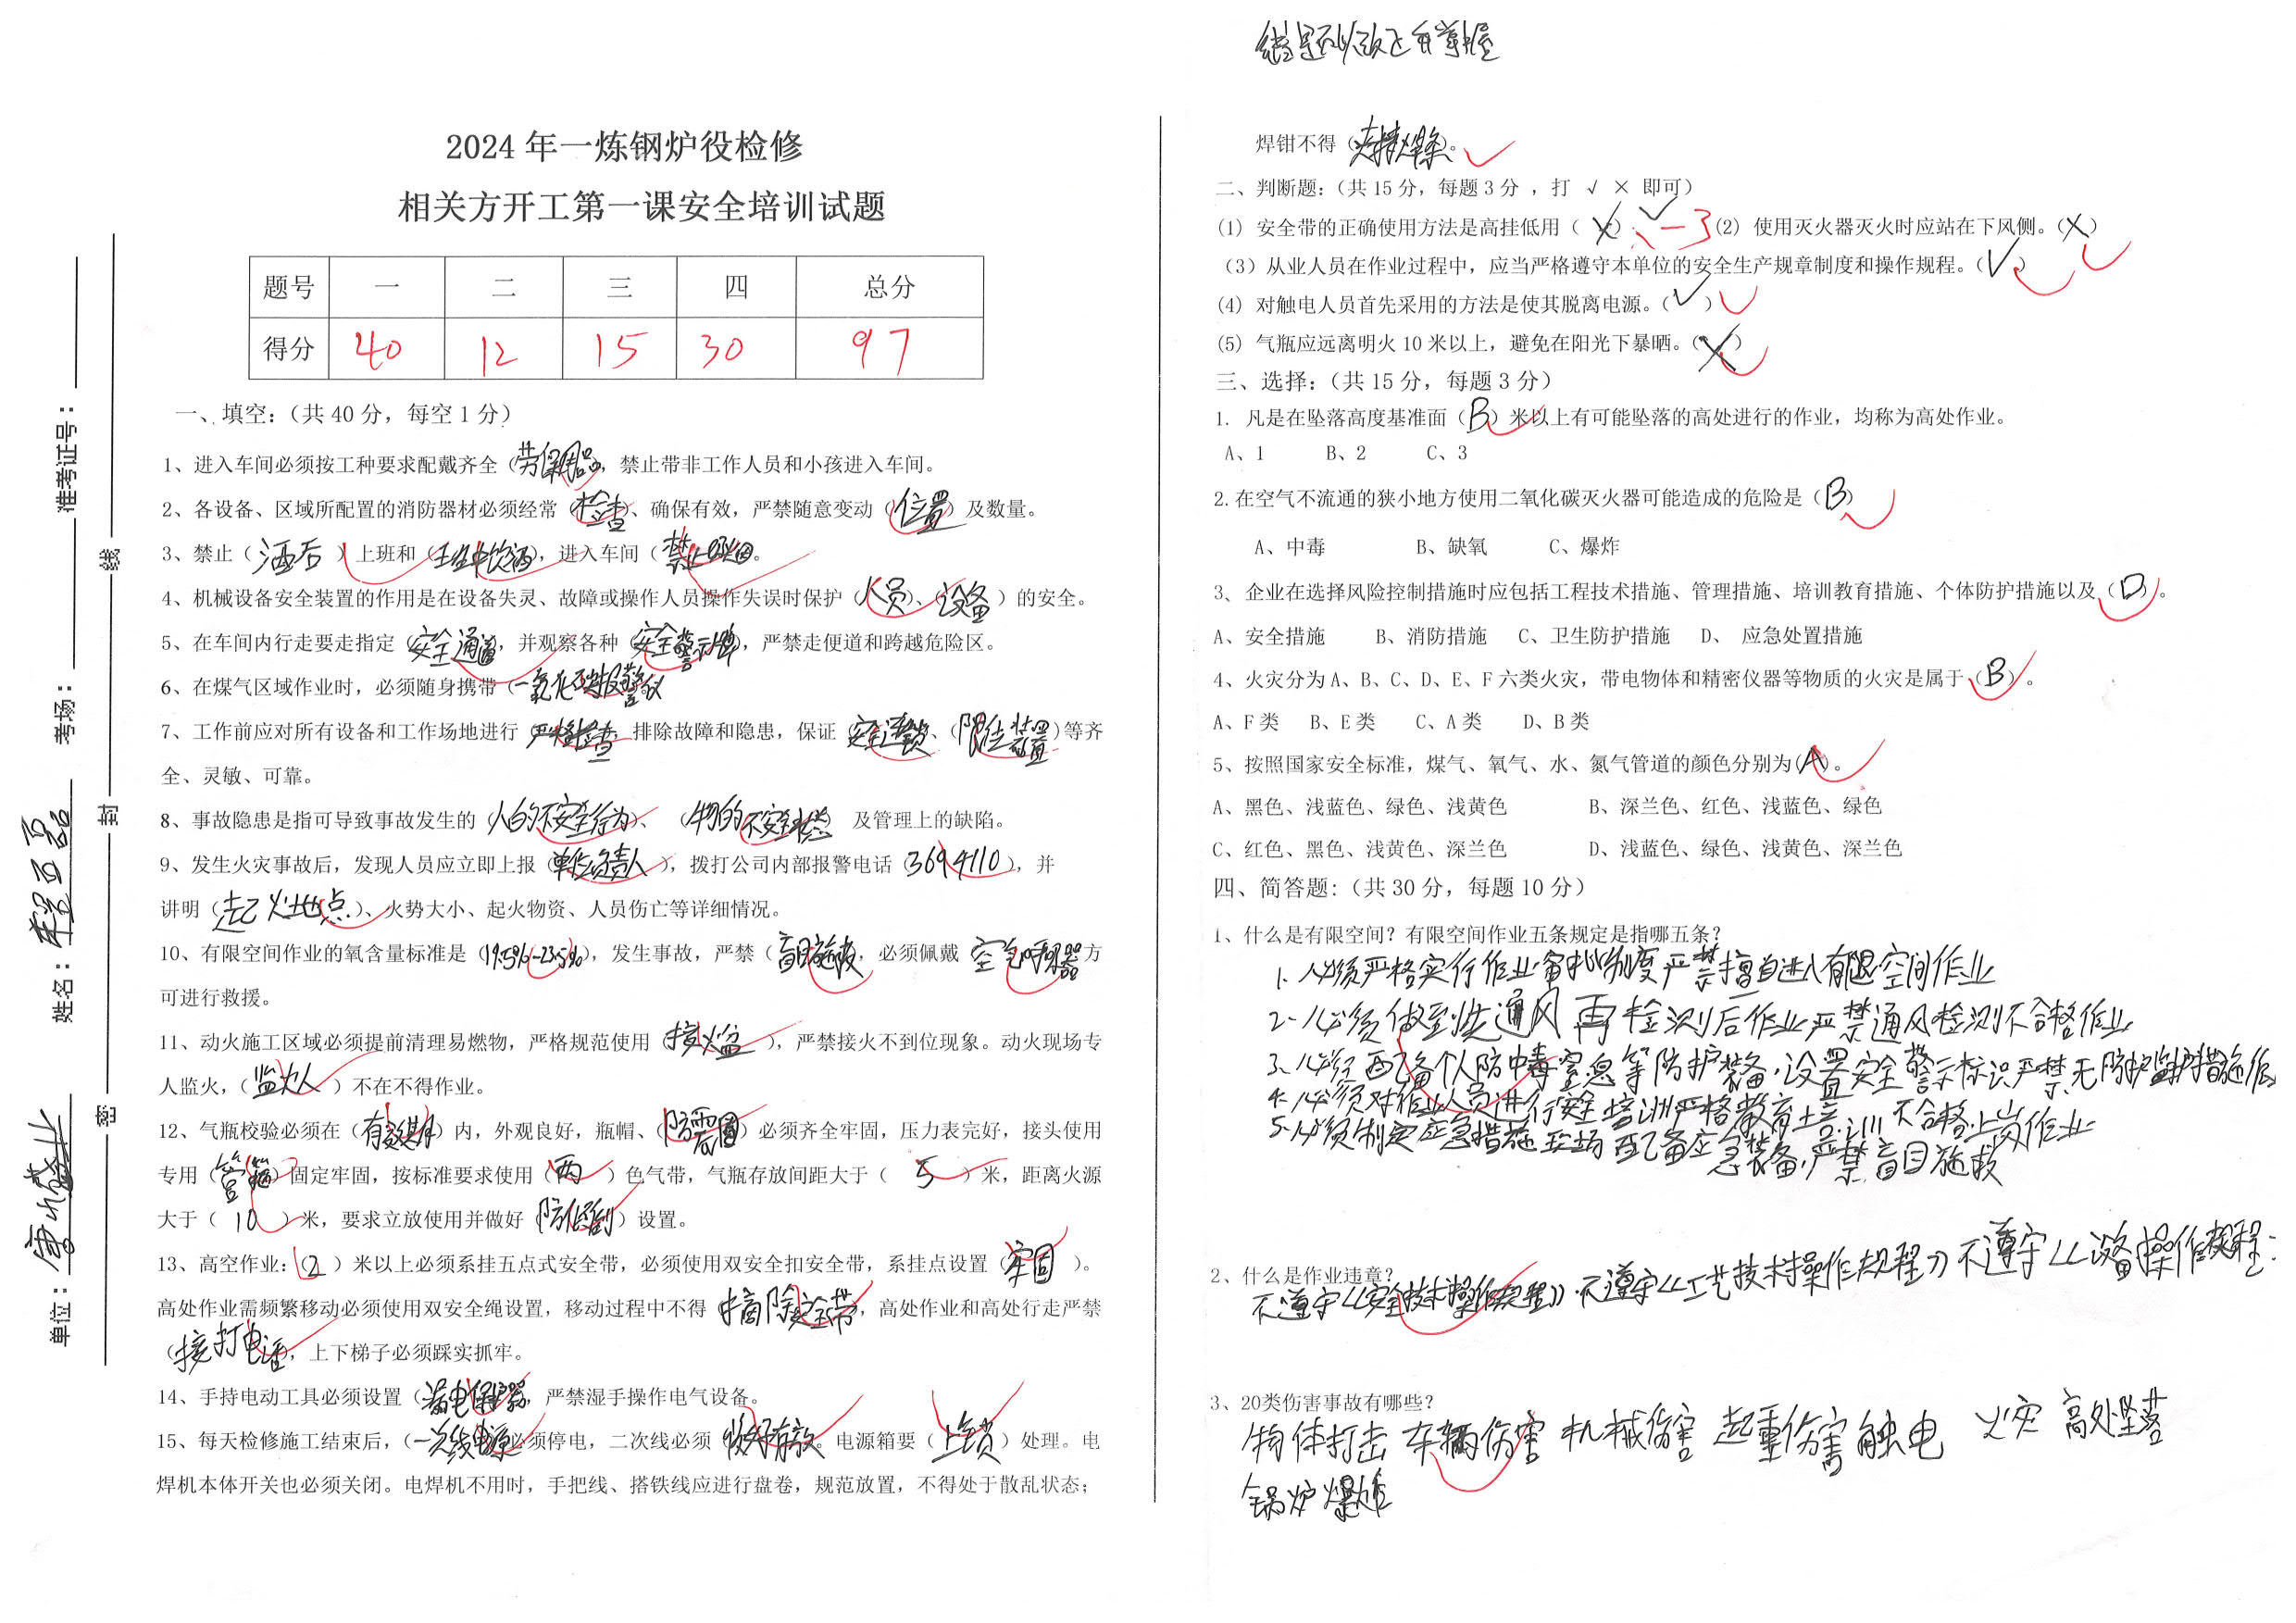 错题以改正并掌握
2024 年一炼钢炉役检修
相关方开工第一课安全培训试题
题号 一 二 三 四 总分
得分 40 12 15 30 97
准考证号：
考场：
姓名：
单位：
线
封
密
一、填空：（共 40 分，每空 1 分）
1、进入车间必须按工种要求配戴齐全（劳保用品），禁止带非工作人员和小孩进入车间。
2、各设备、区域所配置的消防器材必须经常（检查）、确保有效，严禁随意变动（位置）及数量。
3、禁止（酒后）上班和（班中饮酒），进入车间（禁止吸烟）。
4、机械设备安全装置的作用是在设备失灵、故障或操作人员操作失误时保护（人员）、（设备）的安全。
5、在车间内行走要走指定（安全通道），并观察各种（安全警示牌），严禁走便道和跨越危险区。
6、在煤气区域作业时，必须随身携带（一氧化碳报警仪
7、工作前应对所有设备和工作场地进行（严格检查），排除故障和隐患，保证（安全连锁）、（限位装置）等齐
全、灵敏、可靠。
8、事故隐患是指可导致事故发生的（人的不安全行为）、（物的不安全状态 及管理上的缺陷。
9、发生火灾事故后，发现人员应立即上报（单位负责人），拨打公司内部报警电话（3694110），并
讲明（起火地点）、火势大小、起火物资、人员伤亡等详细情况。
10、有限空间作业的氧含量标准是（19.5%-23.5%），发生事故，严禁（盲目施救，必须佩戴 空气呼吸器方
可进行救援。
11、动火施工区域必须提前清理易燃物，严格规范使用（接火盆），严禁接火不到位现象。动火现场专
人监火，（监火人）不在不得作业。
12、气瓶校验必须在（有效期）内，外观良好，瓶帽、（防震圈）必须齐全牢固，压力表完好，接头使用
专用（管箍）固定牢固，按标准要求使用（两）色气带，气瓶存放间距大于（ 5 ）米，距离火源
大于（ 10 ）米，要求立放使用并做好（防倾倒）设置。
13、高空作业：（2）米以上必须系挂五点式安全带，必须使用双安全扣安全带，系挂点设置（牢固）。
高处作业需频繁移动必须使用双安全绳设置，移动过程中不得（摘除安全带），高处作业和高处行走严禁
（接打电话），上下梯子必须踩实抓牢。
14、手持电动工具必须设置（漏电保护器，严禁湿手操作电气设备。
15、每天检修施工结束后，（一次线电源必须停电，二次线必须（ 。电源箱要（上锁）处理。电
焊机本体开关也必须关闭。电焊机不用时，手把线、搭铁线应进行盘卷，规范放置，不得处于散乱状态；
焊钳不得（夹持焊条）。
二、判断题：（共 15 分，每题 3 分 ，打 √ × 即可）
(1) 安全带的正确使用方法是高挂低用（ × ）√ -3 (2) 使用灭火器灭火时应站在下风侧。（×）
（3）从业人员在作业过程中，应当严格遵守本单位的安全生产规章制度和操作规程。（√）
(4) 对触电人员首先采用的方法是使其脱离电源。（√）
(5) 气瓶应远离明火 10 米以上，避免在阳光下暴晒。（×）
三、选择：（共 15 分，每题 3 分）
1. 凡是在坠落高度基准面（B）米以上有可能坠落的高处进行的作业，均称为高处作业。
A、1 B、2 C、3
2.在空气不流通的狭小地方使用二氧化碳灭火器可能造成的危险是（B）
A、中毒 B、缺氧 C、爆炸
3、企业在选择风险控制措施时应包括工程技术措施、管理措施、培训教育措施、个体防护措施以及（D）。
A、安全措施 B、消防措施 C、卫生防护措施 D、 应急处置措施
4、火灾分为 A、B、C、D、E、F 六类火灾，带电物体和精密仪器等物质的火灾是属于（B）。
A、F 类 B、E 类 C、A 类 D、B 类
5、按照国家安全标准，煤气、氧气、水、氮气管道的颜色分别为(A)。
A、黑色、浅蓝色、绿色、浅黄色 B、深兰色、红色、浅蓝色、绿色
C、红色、黑色、浅黄色、深兰色 D、浅蓝色、绿色、浅黄色、深兰色
四、简答题:（共 30 分，每题 10 分）
1、什么是有限空间？有限空间作业五条规定是指哪五条？
1. 必须严格实行作业审批制度严禁擅自进入有限空间作业
2. 必须做到先通风再检测后作业严禁通风检测不合格作业
3、必须配备个人防中毒窒息等防护装备，设置安全警示标识严禁无防护监护措施作业
4. 必须对作业人员进行安全培训严格教育培训不合格上岗作业
5. 必须制定应急措施现场配备应急装备，严禁盲目施救
2、什么是作业违章？
不遵守《安全技术操作规程》，不遵守《工艺技术操作规程》不遵守《设备操作规程》
3、20类伤害事故有哪些？
物体打击 车辆伤害 机械伤害 起重伤害 触电 火灾 高处坠落
锅炉爆炸